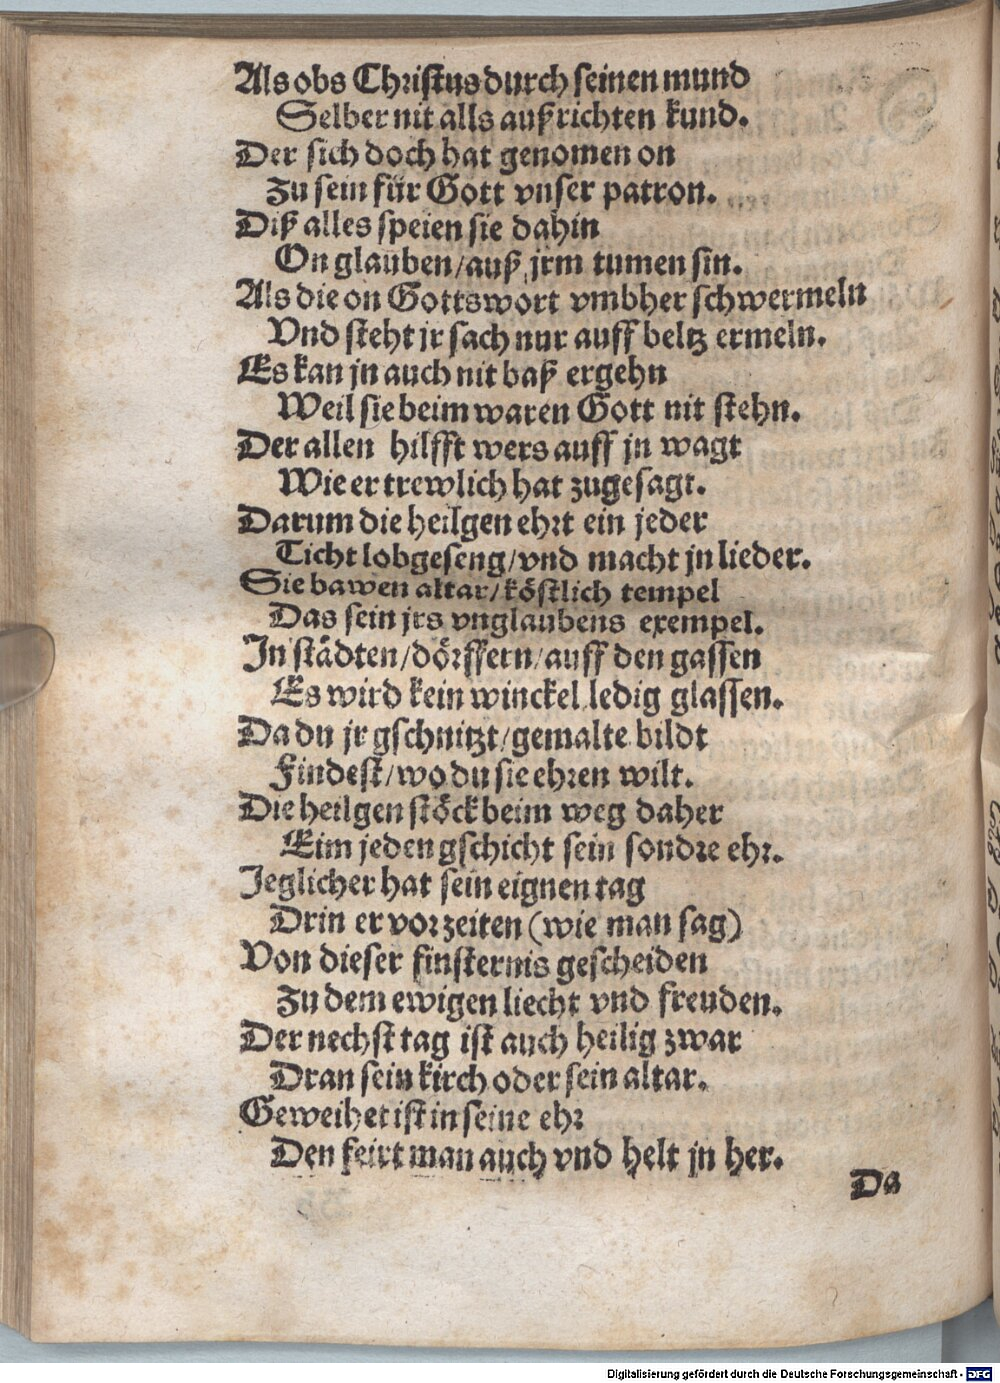 Als obs Christus durch seinen mund
Selber nit alls außrichten kund.
Der sich doch hat genomen on
Zu sein für Gott vnser patron.
Diß alles speien sie dahin
On glauben/auß jrm tumen sin.
Als die on Gottswort vmbher schwermeln
Vnd steht jr sach nur auff beltz ermeln.
Es kan jn auch nit baß ergehn
Weil sie beim waren Gott nit stehn.
Der allen hilfft wers auff jn wagt
Wie er trewlich hat zugesagt.
Darum die heilgen ehrt ein jeder
Ticht lobgeseng/vnd macht jn lieder.
Sie bawen altar/köstlich tempel
Das sein jrs vnglaubens exempel.
In städten/dörffern/auff den gassen
Es wird kein winckel ledig glassen.
Da du jr gschnitzt/gemalte bildt
Findest/wo du sie ehren wilt.
Die heilgen stöck beim weg daher
Eim jeden gschicht sein sondre ehr.
Jeglicher hat sein eignen tag
Drin er vorzeiten (wie man sag)
Von dieser finsternis gescheiden
Zu dem ewigen liecht vnd freuden.
Der nechst tag ist auch heilig zwar
Dran sein kirch oder sein altar.
Geweihet ist in seine ehr
Den feirt man auch vnd helt jn her.
Da
Digitalisierung gefördert durch die Deutsche Forschungsgemeinschaft - DFG